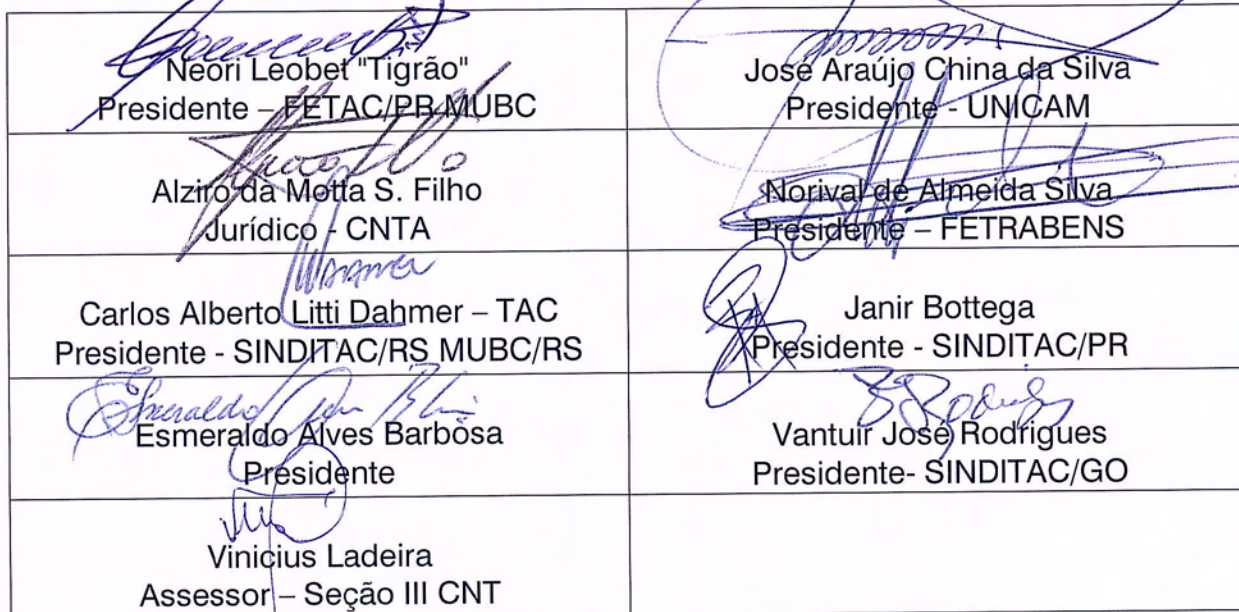 Neori Leobet "Tigrão"
Presidente – FETAC/PR MUBC
José Araújo China da Silva
Presidente - UNICAM
Alziro da Motta S. Filho
Jurídico - CNTA
Norival de Almeida Silva
Presidente – FETRABENS
Carlos Alberto Litti Dahmer – TAC
Presidente - SINDITAC/RS MUBC/RS
Janir Bottega
Presidente - SINDITAC/PR
Esmeraldo
Esmeraldo Alves Barbosa
Presidente
Vantuir José Rodrigues
Presidente- SINDITAC/GO
Vinicius Ladeira
Assessor – Seção III CNT